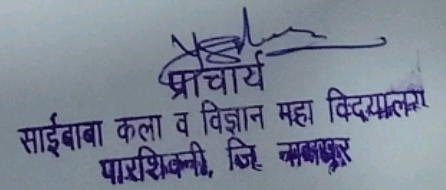 प्राचार्य
साईबाबा कला व विज्ञान महा विद्यालय
पारशिवनी, जि. नागपुर